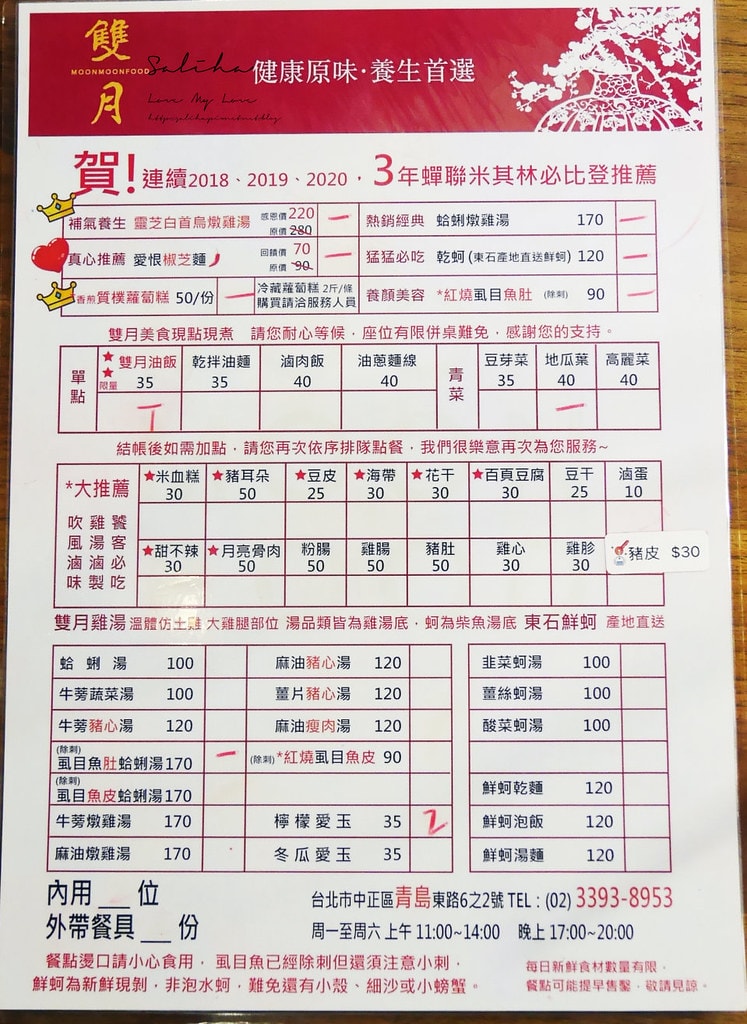 雙月
MOONMOONFOOD
Saliha
Love My Love
健康原味·養生首選
賀!連續2018、2019、2020，3年蟬聯米其林必比登推薦
補氣養生 靈芝白首烏燉雞湯 感恩價 220 原價 280 一
熱銷經典 蛤蜊燉雞湯 170 一
真心推薦 愛恨椒芝麵 回饋價 70 原價 90 一
猛猛必吃 乾蚵(東石產地直送鮮蚵) 120 一
香煎質樸蘿蔔糕 50/份 一 冷藏蘿蔔糕 2斤/條 購買請洽服務人員
養顏美容 *紅燒虱目魚肚 (除刺) 90 一
雙月美食現點現煮 請您耐心等候，座位有限併桌難免，感謝您的支持。
單點 ★★限量 雙月油飯 35 乾拌油麵 35 滷肉飯 40 油蔥麵線 40 青菜 豆芽菜 35 地瓜葉 40 高麗菜 40
T 一
結帳後如需加點，請您再次依序排隊點餐，我們很樂意再次為您服務~
*大推薦
吹風滷味 雞湯滷製 饕客必吃
★米血糕 30 ★豬耳朵 50 ★豆皮 25 ★海帶 30 ★花干 30 ★百頁豆腐 30 豆干 25 滷蛋 10
★甜不辣 30 ★月亮骨肉 50 粉腸 50 雞腸 50 豬肚 50 雞心 30 雞胗 30 豬皮 $30
雙月雞湯 溫體仿土雞 大雞腿部位 湯品類皆為雞湯底，蚵為柴魚湯底 東石鮮蚵 產地直送
蛤蜊湯 100
牛蒡蔬菜湯 100
牛蒡豬心湯 120
(除刺) 虱目魚肚蛤蜊湯 170 一
(除刺) 虱目魚皮蛤蜊湯 170
牛蒡燉雞湯 170
麻油燉雞湯 170
麻油豬心湯 120
薑片豬心湯 120
麻油瘦肉湯 120
(除刺) *紅燒虱目魚皮 90
檸檬愛玉 35 2
冬瓜愛玉 35
韭菜蚵湯 100
薑絲蚵湯 100
酸菜蚵湯 100
鮮蚵乾麵 120
鮮蚵泡飯 120
鮮蚵湯麵 120
內用 ___ 位
外帶餐具 ___ 份
台北市中正區青島東路6之2號 TEL：(02) 3393-8953
周一至周六 上午 11:00~14:00 晚上 17:00~20:00
餐點燙口請小心食用，虱目魚已經除刺但還須注意小刺，
鮮蚵為新鮮現剝，非泡水蚵，難免還有小殼、細沙或小螃蟹。
每日新鮮食材數量有限，
餐點可能提早售罄，敬請見諒。